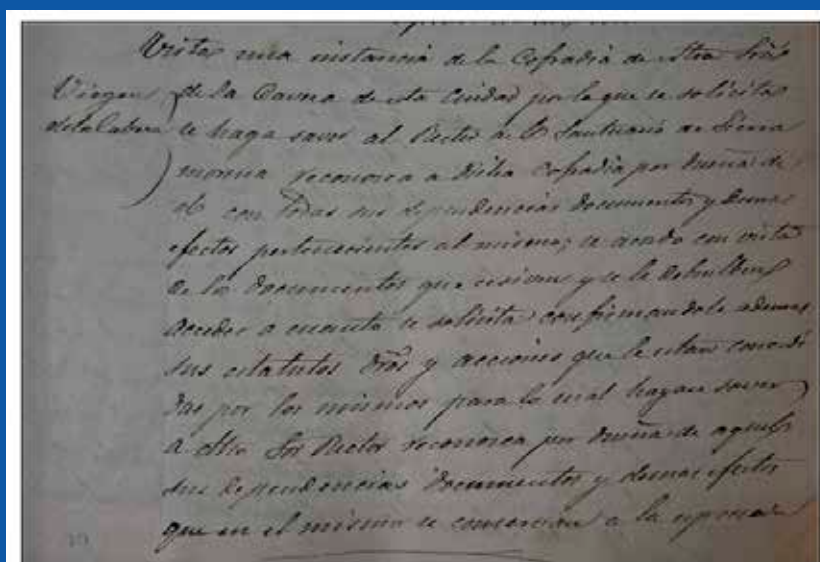 Vista una instancia de la Cofradia de Ntra Srã
Virgen de la Cavera de esta Ciudad por la que se solicita
se haga saver al Rector de el Santuario de Sierra
morena reconosca a dicha cofradia por dueña de
el con todas sus dependencias documentos y demas
efectos pertenecientes al mismo; se acordo con vista
de los documentos que y se le debuelben
acceder a cuanto se solicita confirmandole ademas
sus estatutos dros y acciones que le estan concedi
das por los mismos para lo cual hagase saver
a dho Sor Rector reconosca por dueña de aquel
sus dependencias documentos y demas efectos
que en el mismo se conservan a la